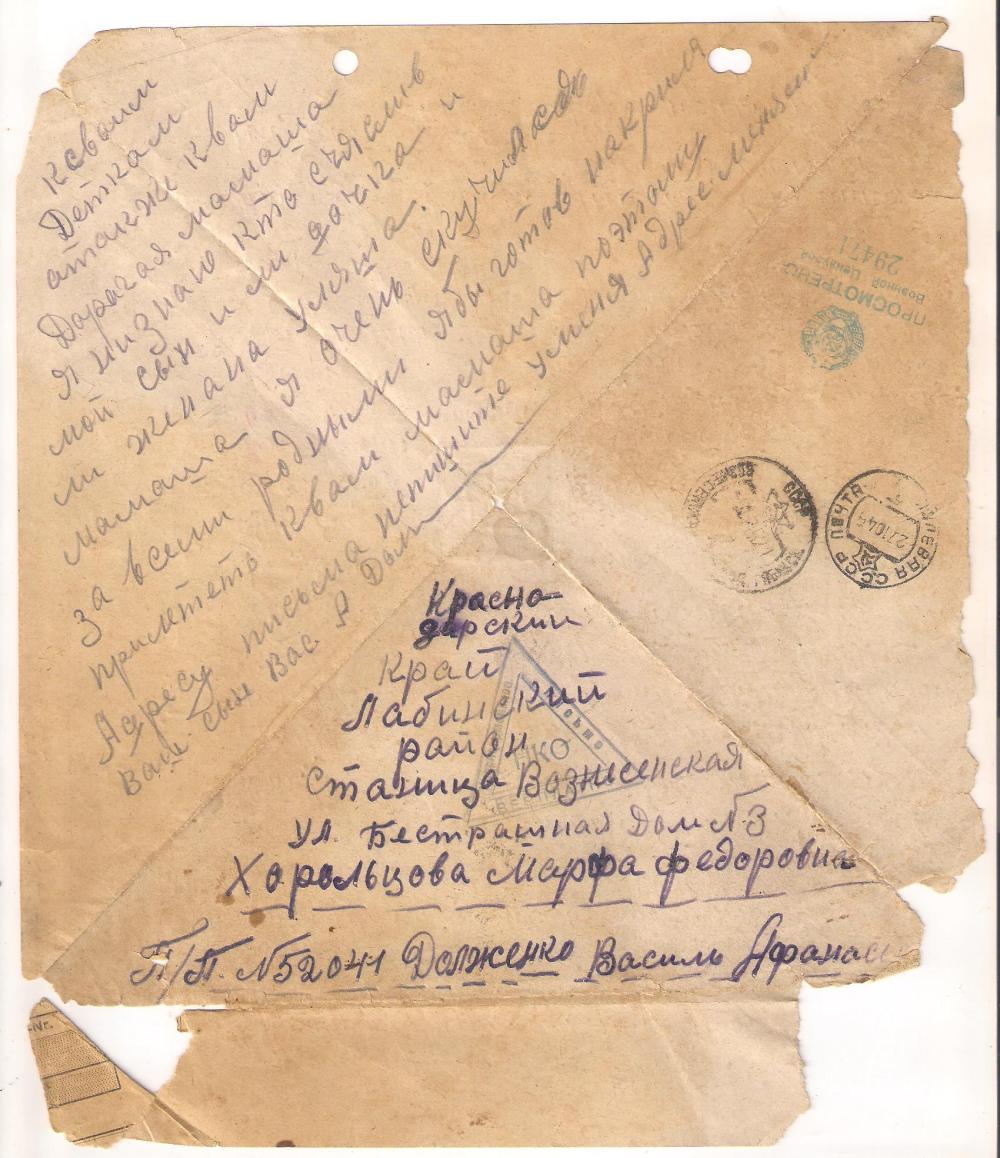 ксвоим
Деткам
атакже квам
Дорагая мамаша
я низнаю кто счямив
мой сын и ли дочка и
ли жена на уляша.
мамаша я очень скучился
за всеми родными ябы готов накрила
прилететь квам мамаша поэтому
Адресу письма непишите уменя Адрес
Ваш сын Вас А Долж
ПРОСМОТРЕНО
Военной Цензурой
29471
СССР
ПОЛЕВАЯ ПОЧТА
СССР
Красно
дарский
Край
Лабинский
район
станица Вознесенская
ул. Бестрашная Дом N.3
Хорольцова Марфа федоровна
П/П. N52041 Долженко Василь Афанась
НКО
-Nr.